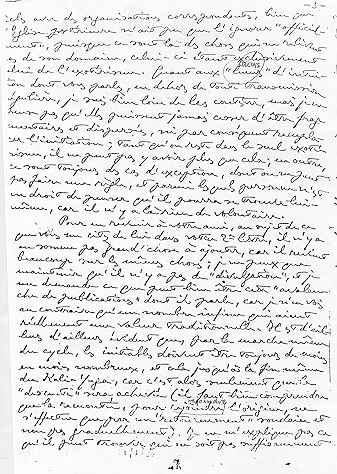 - 3 -
tels avec des organisations correspondantes, bien que
l'Église extérieure n'ait pu que l'ignorer "officiel-
ment", puisque ce sont là des choses qui ne relèvent
pas de son domaine, celui-ci étant exclusivement
celui de l'exotérisme. Quant aux "lueurs" d'intui-
tion dont vous parlez, en dehors de toute transmission
régulière, je suis bien loin de les contester, mais je ne
pense pas qu'elles puissent jamais cesser d'être frag-
mentaires et dispersées, ni par conséquent remplacer
l'initiation ; tant qu'on reste dans le seul exoté-
risme, il ne peut pas y avoir plus que cela ; en outre,
ce sont toujours des cas d'exception, dont on ne peut
pas faire une règle, et parmi lesquels personne n'est
en droit de penser qu'il pourra se trouver lui-
même, car il n'y a là rien de volontaire.
Pour en revenir à votre ami, au sujet de ce
que vous en citez de lui dans votre 2e lettre, il n'y a
en somme pas grand'chose à ajouter, car il revient
beaucoup sur les mêmes choses ; je ne peux que
maintenir qu'il n'y a pas de "divulgation", et je
me demande ce que peut bien être cette "avalan-
che de publications" dont il parle, car je n'en vois
au contraire qu'un nombre infime qui aient
réellement une valeur traditionnelle. Il est d'ail-
leurs évident que, par la marche même
du cycle, les initiables doivent être toujours de moins
en moins nombreux, et cela jusqu'à la fin même
du Kali-Yuga, car c'est alors seulement que la
"descente" sera achevée (il faut bien comprendre
que la remontée, pour rejoindre l'origine, ne
s'effectue que par un "retournement" soudain et
non pas graduellement). Je ne m'explique pas ce
qu'il peut trouver qui ne soit pas suffisamment